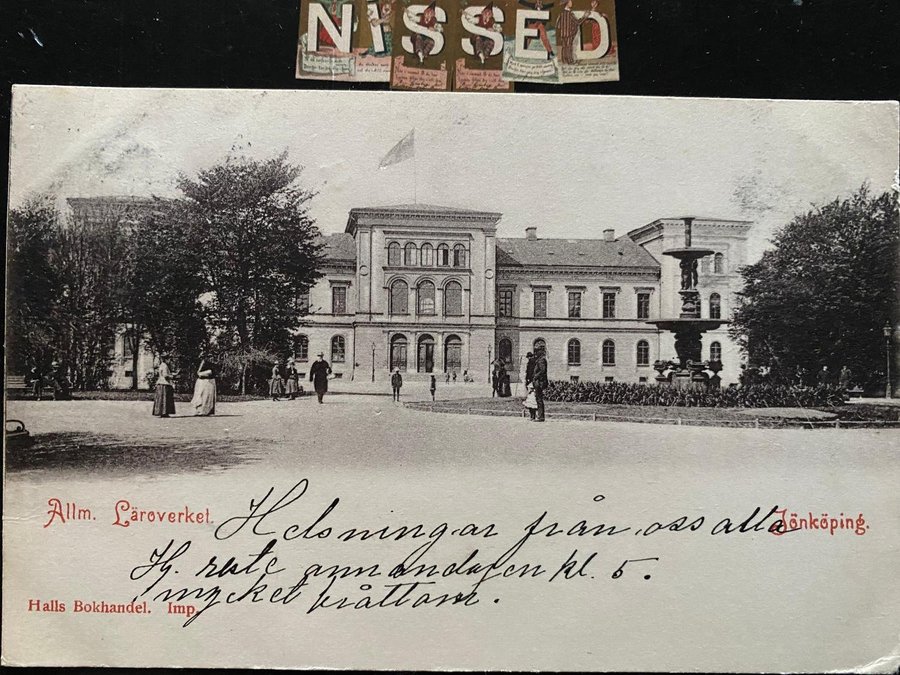 NISSED
Allm. Läroverket.
Jönköping.
Helsningar från oss alla
Hj. reste annandagen kl. 5.
mycket bråttom.
Halls Bokhandel. Imp.